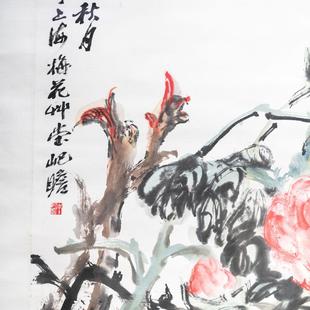 秋月
上海梅花草堂屺瞻